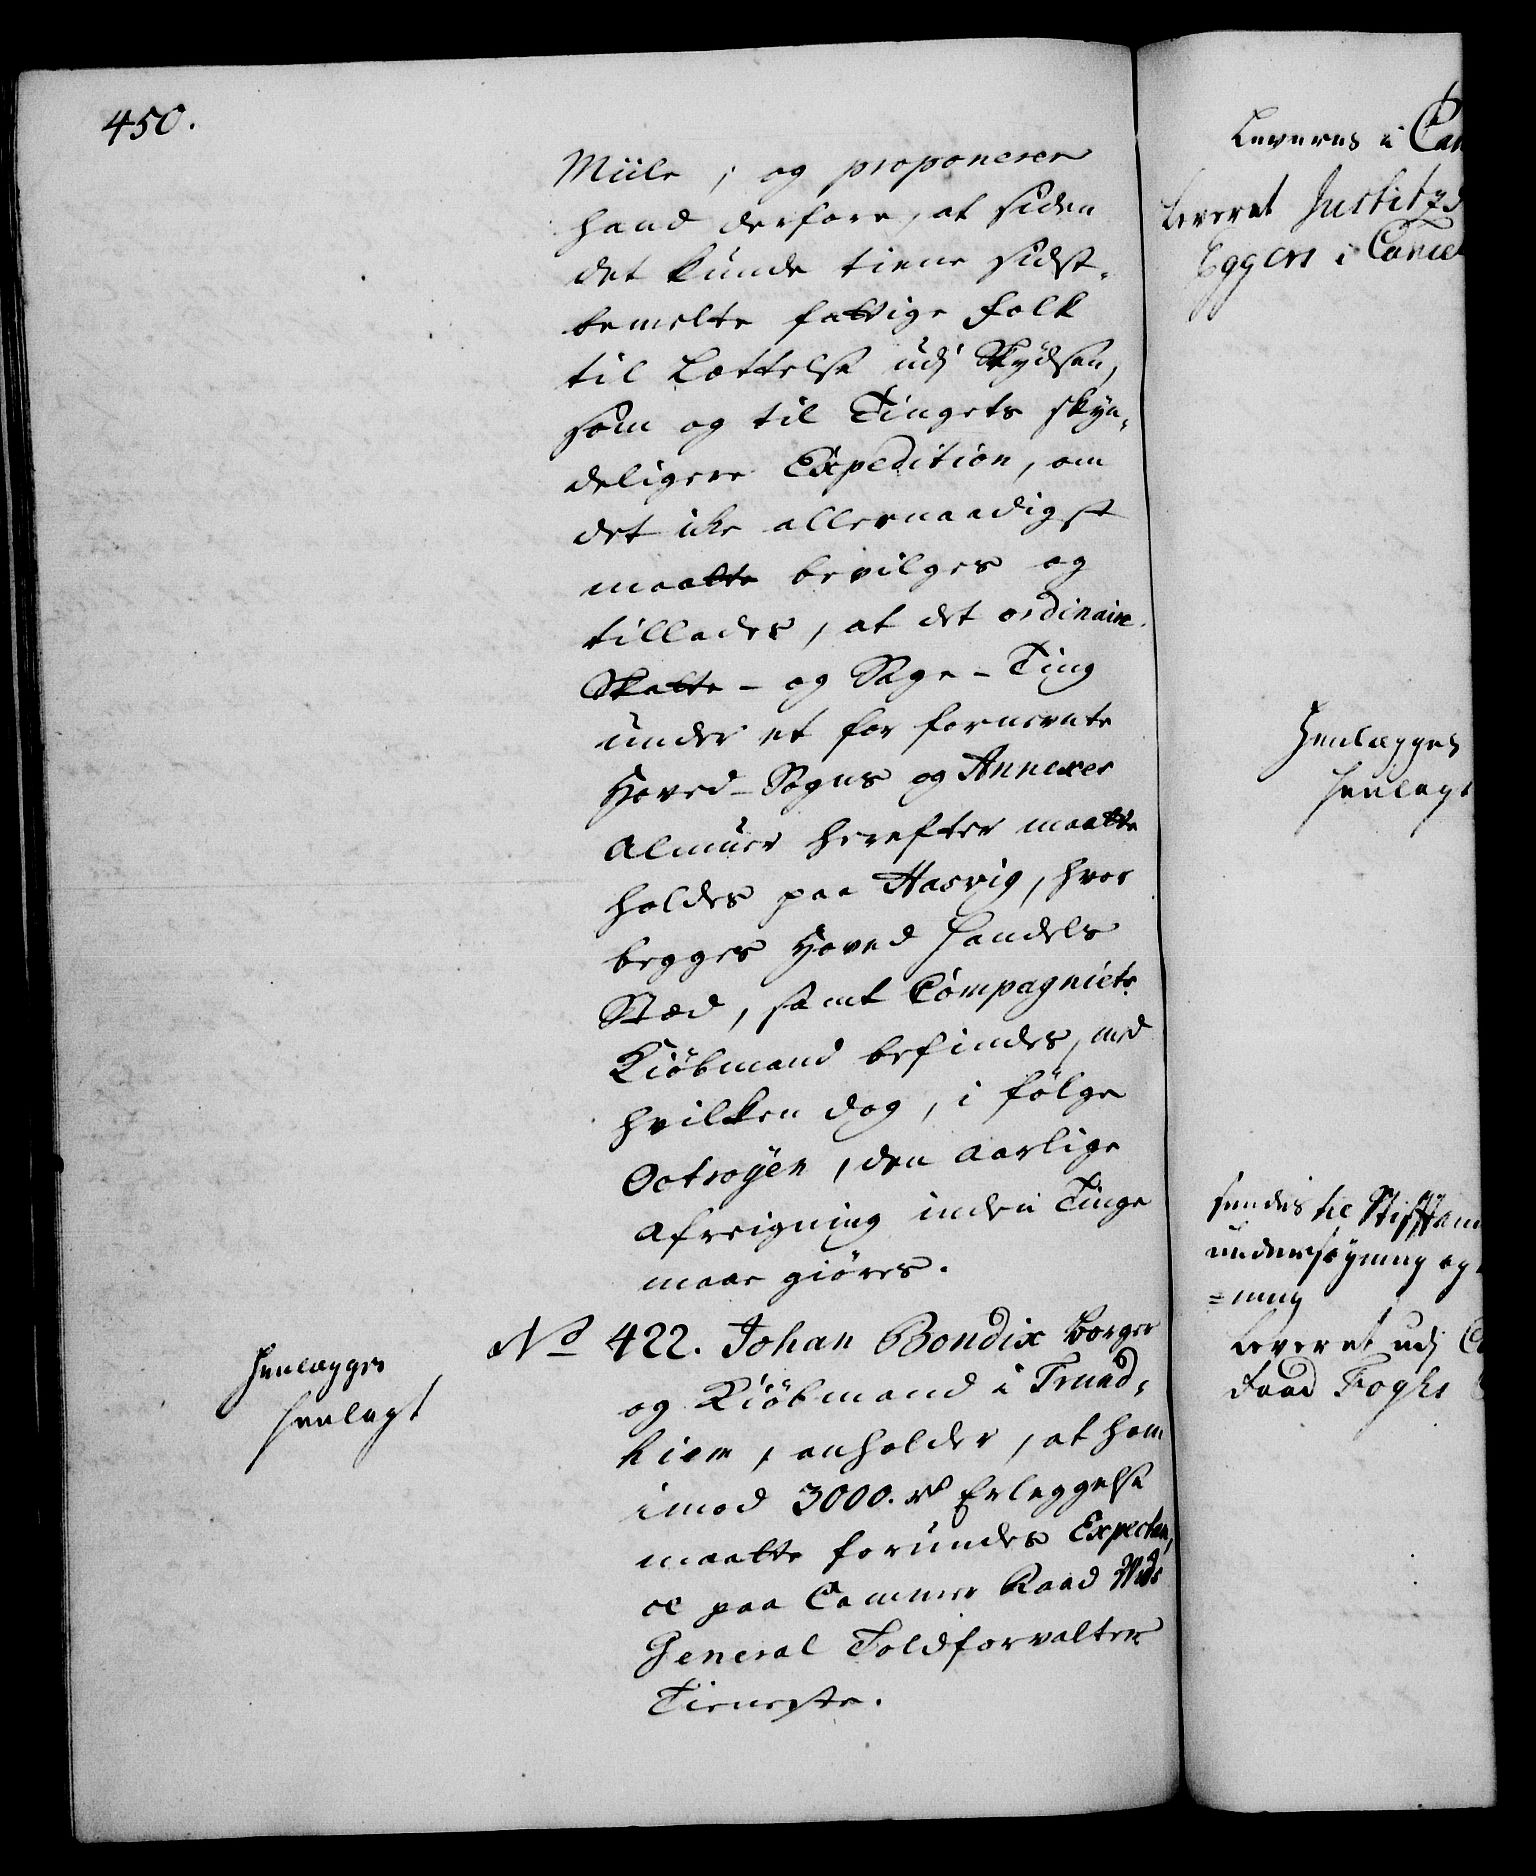 450.
Miile, og proponerer
hand derfore, at siden
det kunde tiene sidst-
bemelte fattige Folk
til Lættelse udj Skydsen,
som og til Tingets skyn-
deligere Expedition, om
det icke allernaadigst
maatte bevilges og
tillades, at det ordinaire
Skatte- og Sage-Ting
under et for fornevnte
Hoved-Sogns og Annexes
Almue herefter maatte
holdes paa Hasvig, hvor
begges Hoved Handels
Stæd, samt Compagniets
Kiöbmand befindes, med
hvilken dog, i fölge
Octroyen, den aarlige
Afreigning inden Tinge
maae giöres.
No 422. Johan Bondix Borger
og Kiöbmand i Trund-
hiem, anholder, at ham
imod 3000. rd Erleggelse
maatte forundes Expectan-
ce paa Cammer Raad
General Toldforvalter
Tieneste.
Henlægges
henlagt
Leveres i Can
Leveret Justitzr
Eggers i Cancel
Henlægges
henlagt
sendes til Stiftam
undersøgning og
=ning
Leveret udj C
Raad Foghs